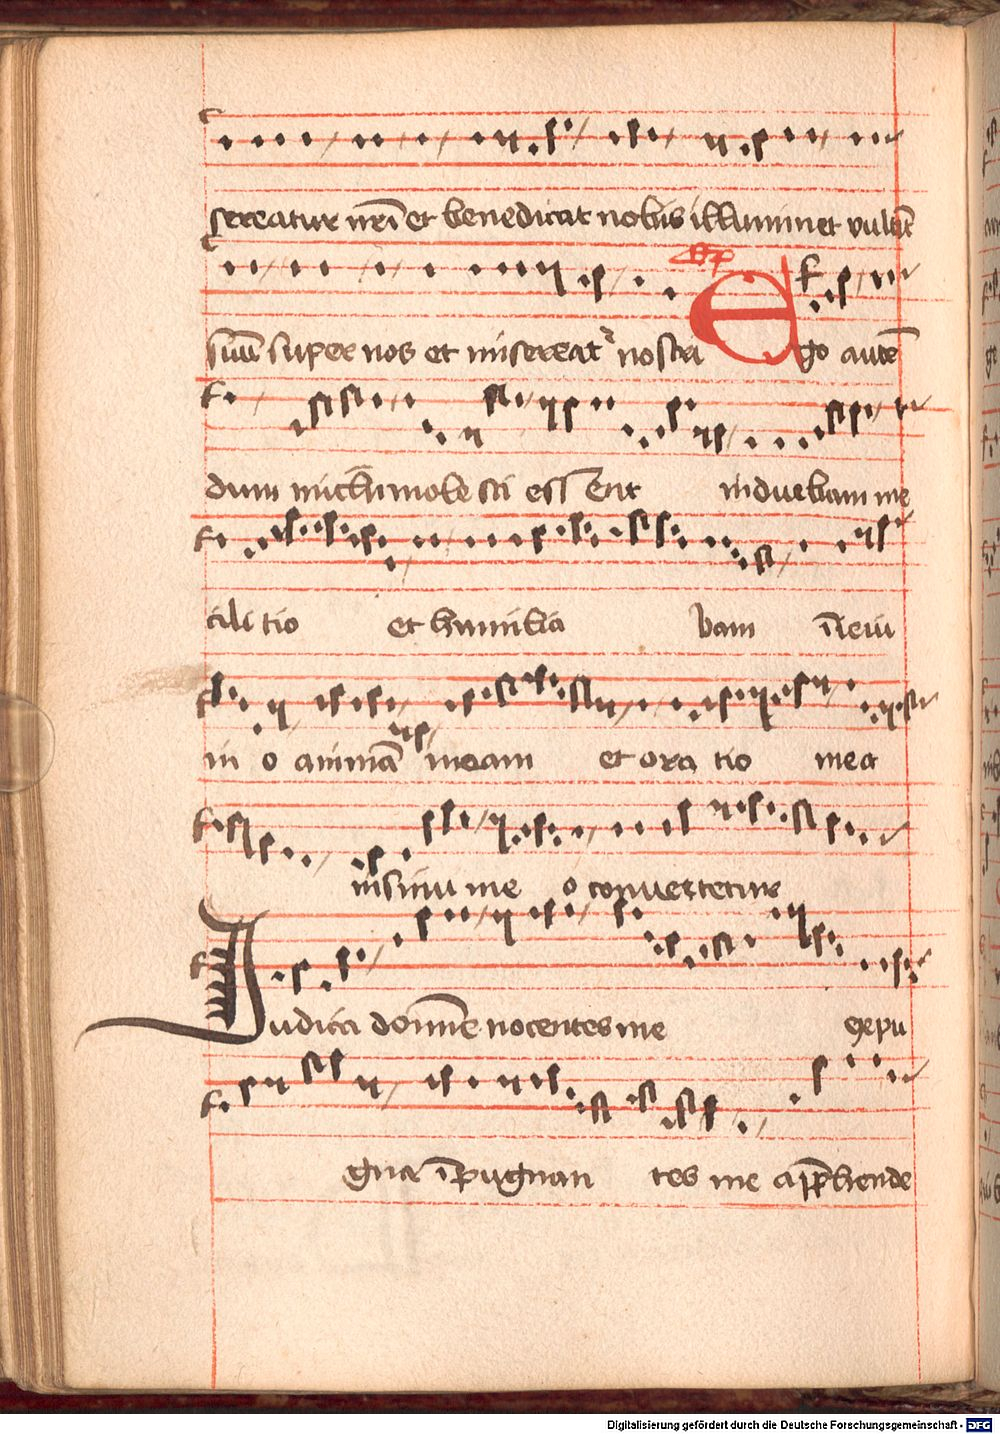 sereatur nr̄i et benedicat nobis illuminet vultū
Gr̄
suū super nos et misereat᷒ nostri Ego autē
dum michi molesti essēnt induebam me
cilitio et humilia bam īieiu
ni o animā meam et ora tio mea
in sinu me o convertetur
Iudica domīne nocentes me expu
gna īpugnan tes me appͬhende
Digitalisierung gefördert durch die Deutsche Forschungsgemeinschaft - DFG